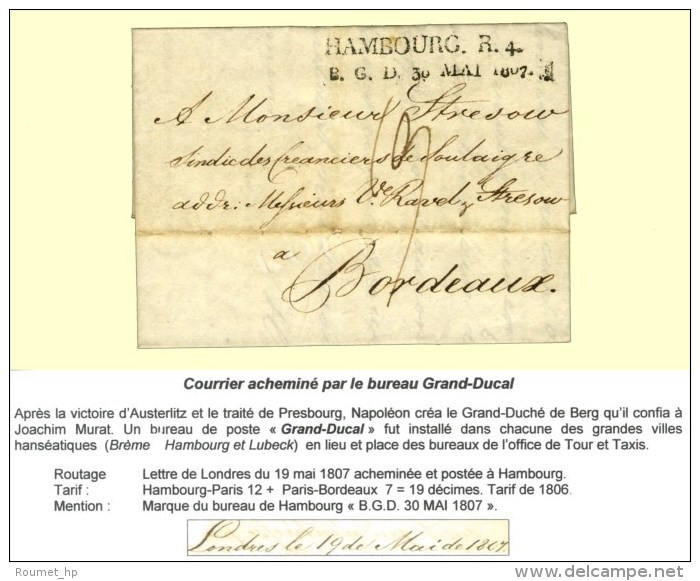 HAMBOURG. R. 4.
B. G. D. 30 MAI 1807.
A Monsieur Stresow
Sindic des Creanciers de Soulaigre
addr: Messieurs Ve. Ravel & Stresow
a
Bordeaux.
Courrier acheminé par le bureau Grand-Ducal
Après la victoire d'Austerlitz et le traité de Presbourg, Napoléon créa le Grand-Duché de Berg qu'il confia à
Joachim Murat. Un bureau de poste « Grand-Ducal » fut installé dans chacune des grandes villes
hanséatiques (Brème Hambourg et Lubeck) en lieu et place des bureaux de l'office de Tour et Taxis.
Routage Lettre de Londres du 19 mai 1807 acheminée et postée à Hambourg.
Tarif : Hambourg-Paris 12 + Paris-Bordeaux 7 = 19 décimes. Tarif de 1806.
Mention : Marque du bureau de Hambourg « B.G.D. 30 MAI 1807 ».
Londres le 19 de Mai de 1807.
Roumet_hp
delcampe.net